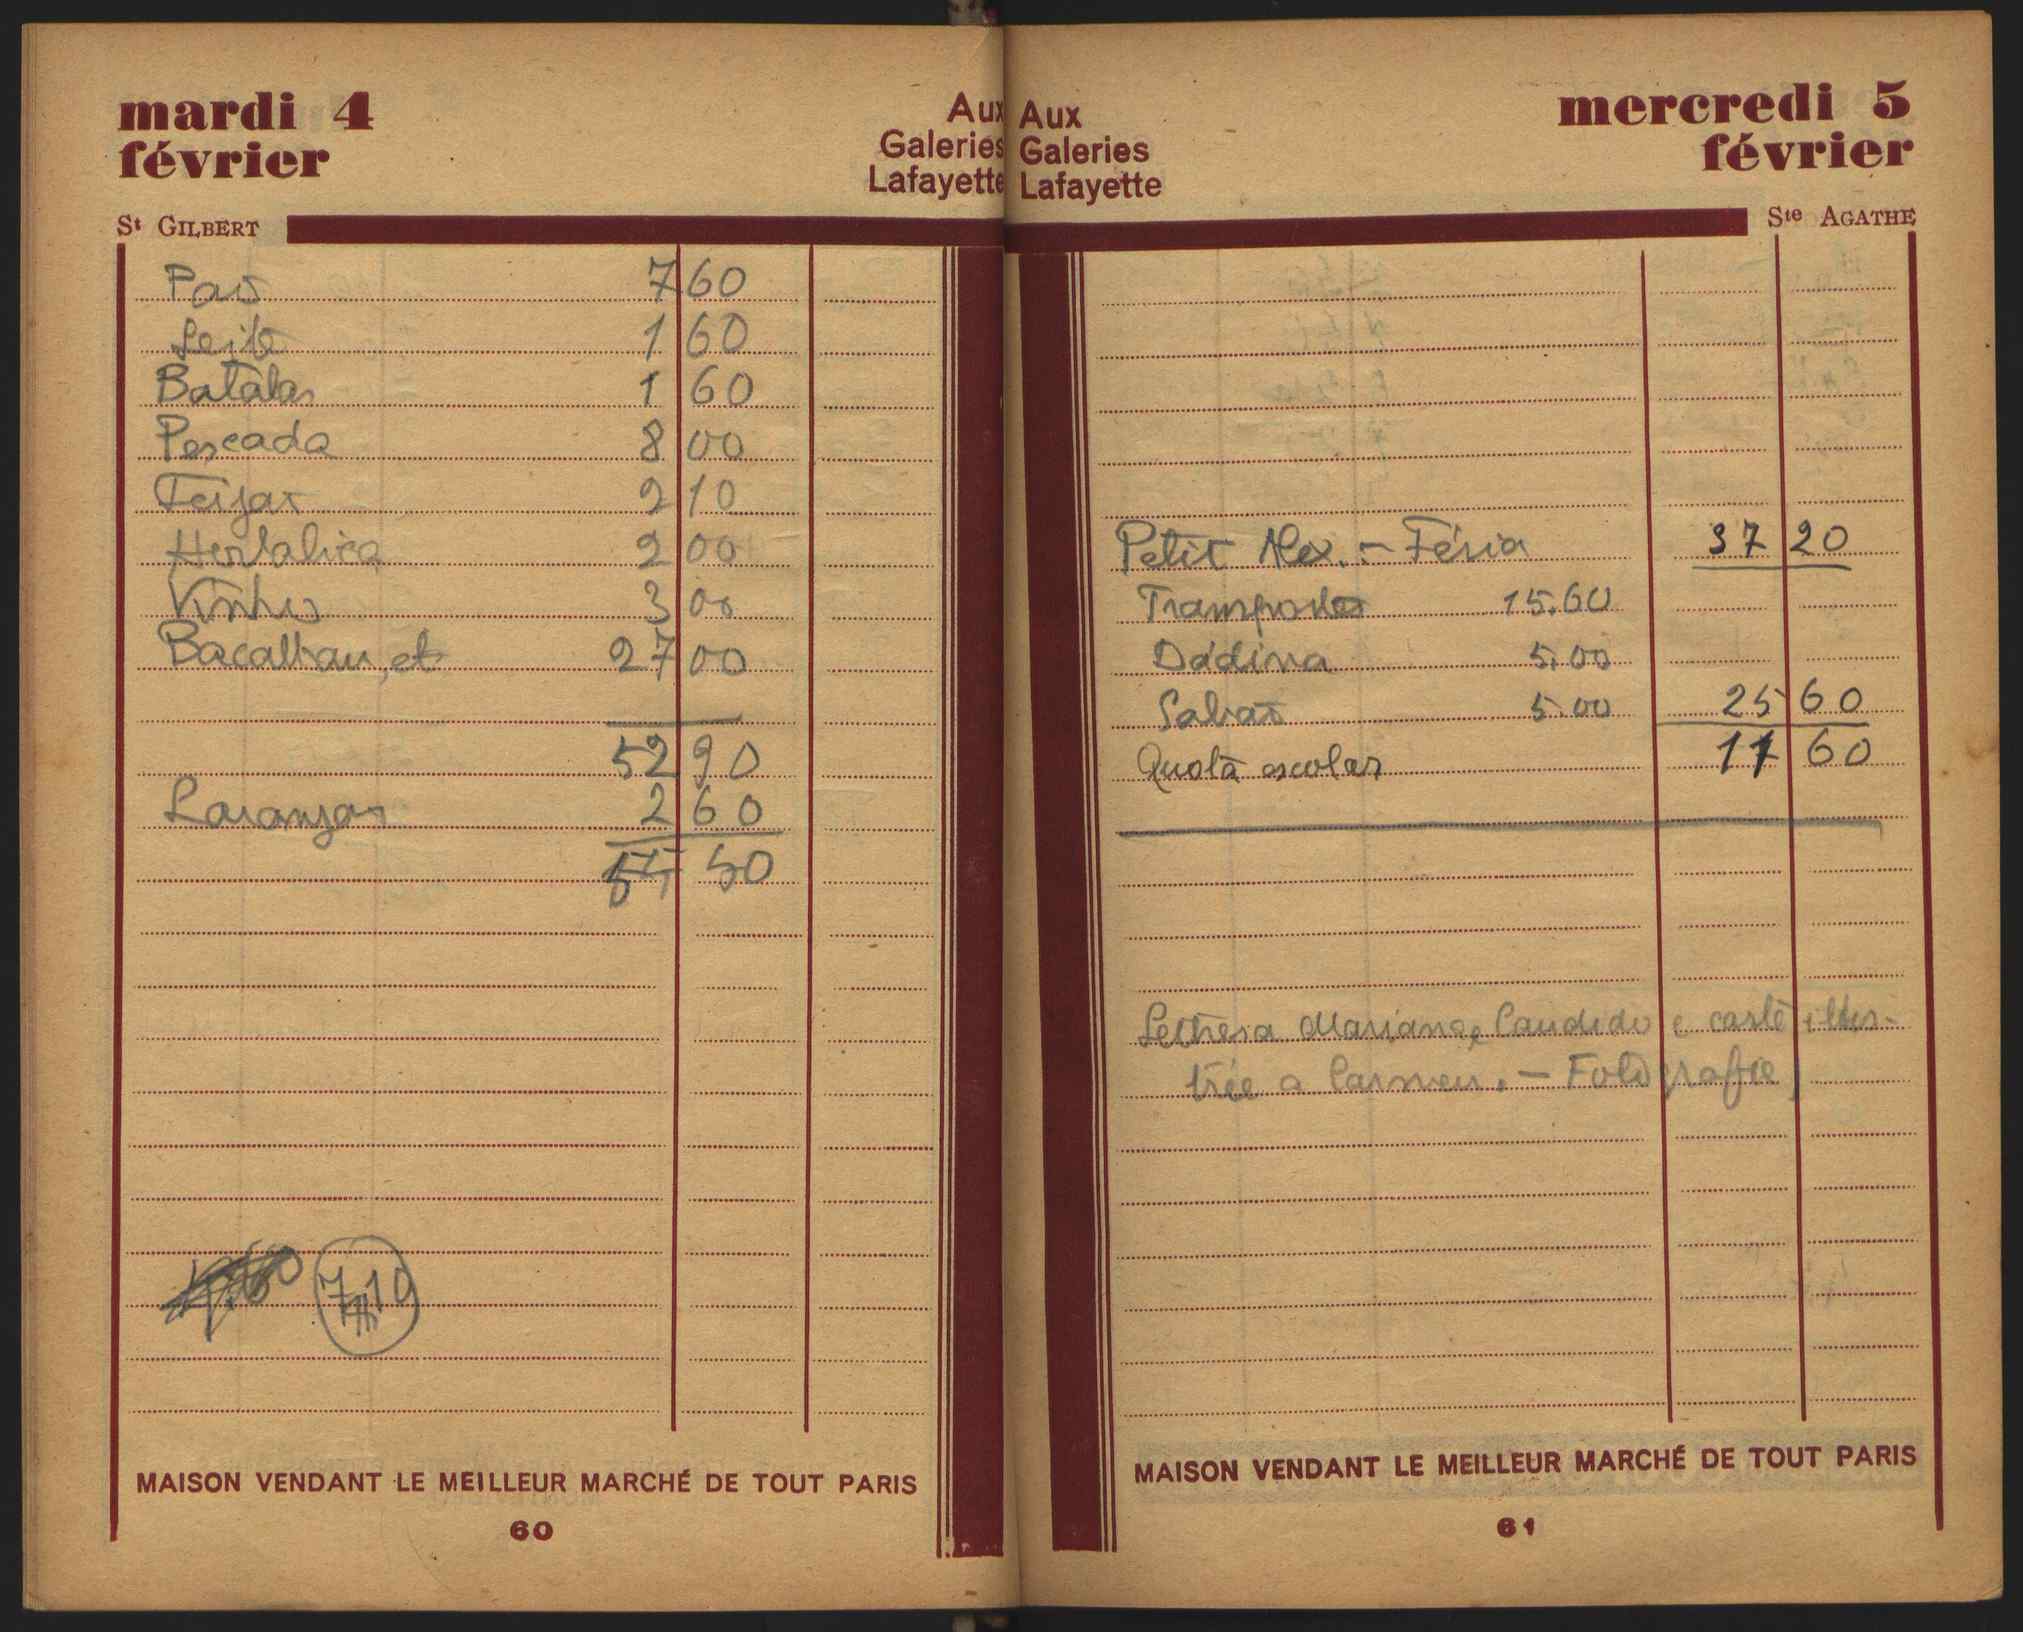 mardi 4
février
Aux
Galeries
Lafayette
St GILBERT
Pão 7 60
Leite 1 60
Batatas 1 60
Pescada 8 00
Feijão 2 10
Hortaliça 2 00
Vinho 3 00
Bacalhau, etc 27 00
52 90
Laranjas 2 60
50
7,10
MAISON VENDANT LE MEILLEUR MARCHÉ DE TOUT PARIS
60
Aux
Galeries
Lafayette
mercredi 5
février
Ste AGATHE
Petit Alex. – Féria 37 20
Transportes 15.60
Dádiva 5.00
Sabão 5.00 25 60
Quota escolar 11 60
Mariana e Candido e carte illus-
trée a Carmen. – Fotografie
MAISON VENDANT LE MEILLEUR MARCHÉ DE TOUT PARIS
61